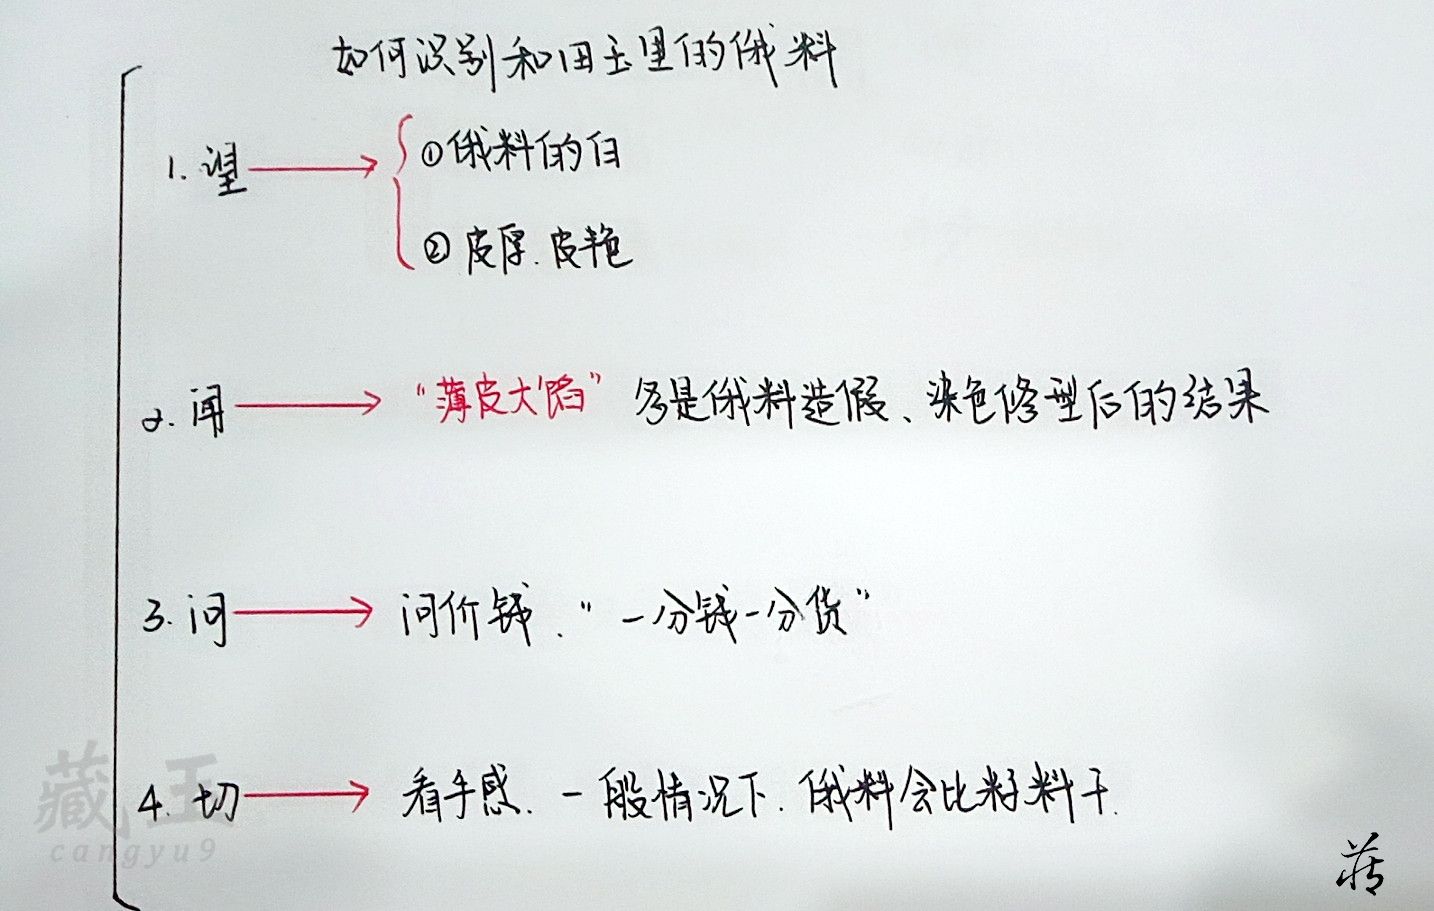 如何识别和田玉里的俄料
1. 望 → ①俄料的白
②皮厚.皮艳
2. 闻 → “薄皮大馅” 多是俄料造假、染色修型后的结果
3. 问 → 问价钱. “一分钱一分货”
4. 切 → 看手感. 一般情况下. 俄料会比籽料干.
藏玉
cangyu9